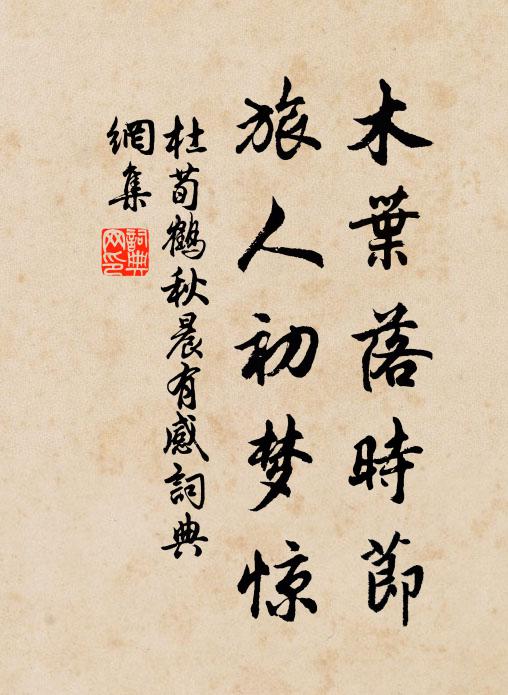 木葉落時節
旅人初梦惊
杜荀鶴秋晨有感詞典
網集
詞典
网印